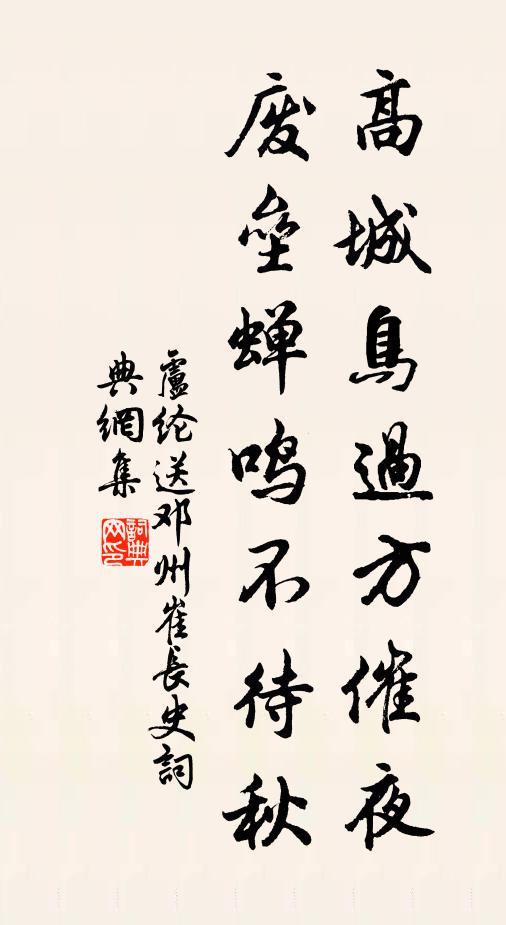 高城鳥過方催夜
废壘蝉鸣不待秋
盧纶送邓州崔長史詞
典網集
詞典网印